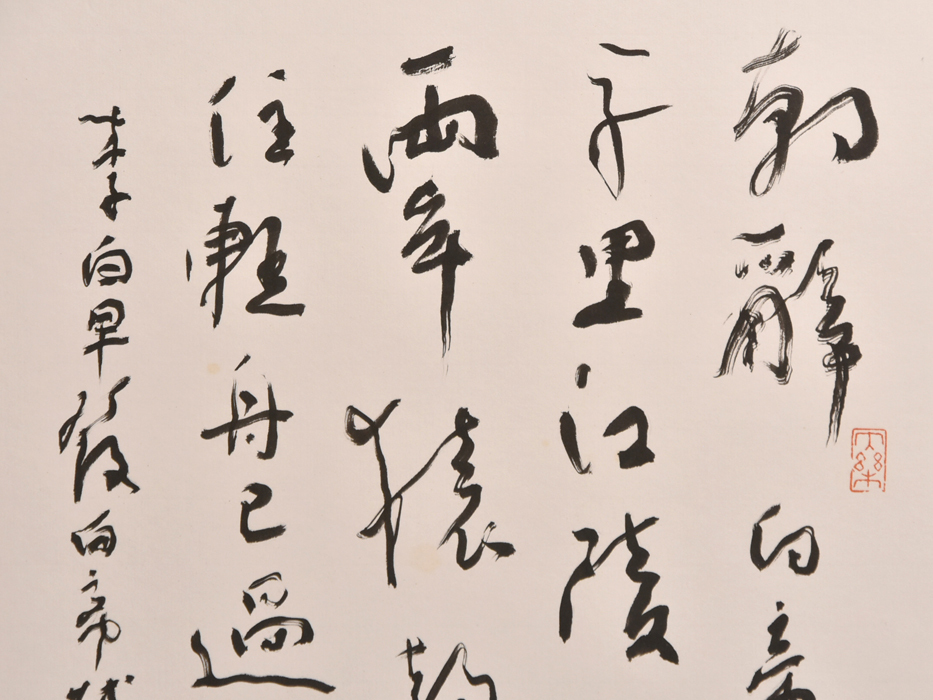 朝辭白帝
千里江陵
兩岸猿
住輕舟已過
李白早發白帝城